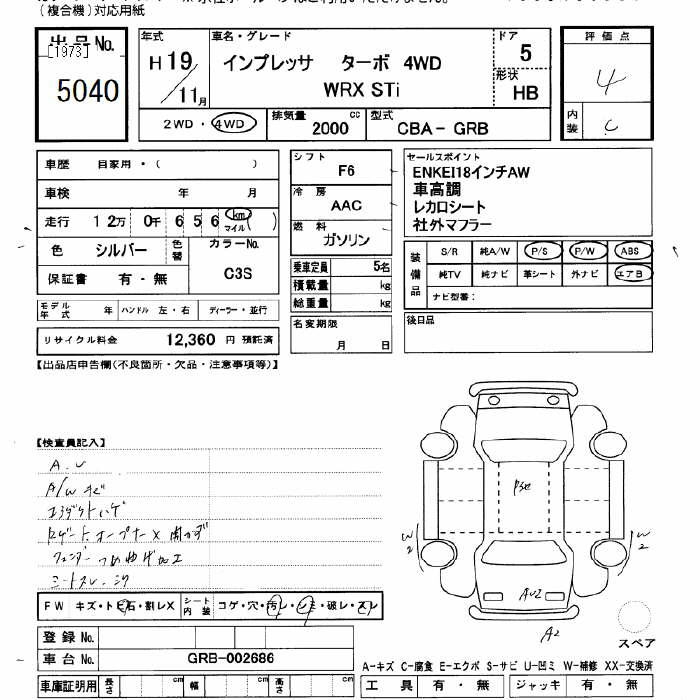 (複合機)対応用紙
出品No.
[1973]
5040
年式
H19/11月
車名・グレード
インプレッサ ターボ 4WD
WRX STi
ドア
5
形状
HB
2WD・4WD
排気量
2000
cc
型式
CBA-GRB
評価点
4
内装
C
車歴 自家用・( )
車検 年 月
走行 12万 0千 656 km マイル ( )
色 シルバー 色替
カラーNo.
C3S
保証書 有・無
モデル年式 年 ハンドル 左・右 ディーラー・並行
リサイクル料金 12,360 円 預託済
シフト
F6
冷房
AAC
燃料
ガソリン
乗車定員 5名
積載量 kg
総重量 kg
名変期限
月 日
セールスポイント
ENKEI18インチAW
車高調
レカロシート
社外マフラー
装備品
S/R 純A/W P/S P/W ABS
純TV 純ナビ 革シート 外ナビ エアB
ナビ型番:
後日品
【出品店申告欄(不良箇所・欠品・注意事項等)】
【検査員記入】
A.U
A/Wキズ
エアダクトハゲ
フェンダーつめ曲げ加工
シートスレ・シワ
FW キズ・トビ石・割レX
シート内装 コゲ・穴・汚レ・シミ・破レ・スレ
登録No.
車台No. GRB-002686
車庫証明用 長さ cm 幅 cm 高さ cm
W2
W2
AU2
A2
スペア
A-キズ C-腐食 E-エクボ S-サビ U-凹ミ W-補修 XX-交換済
工具 有・無 ジャッキ 有・無